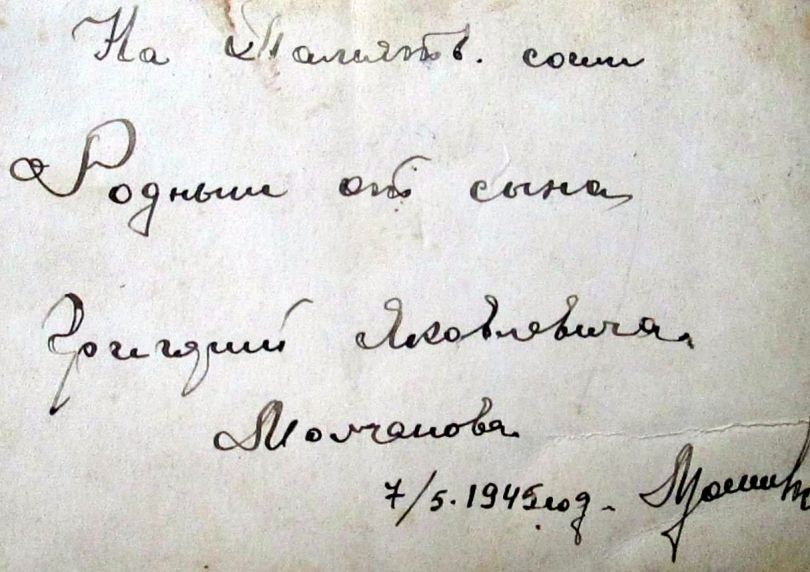 На Память. соим
Родным от сына
Яковлевича.
Молчанова
7/5.1945год.